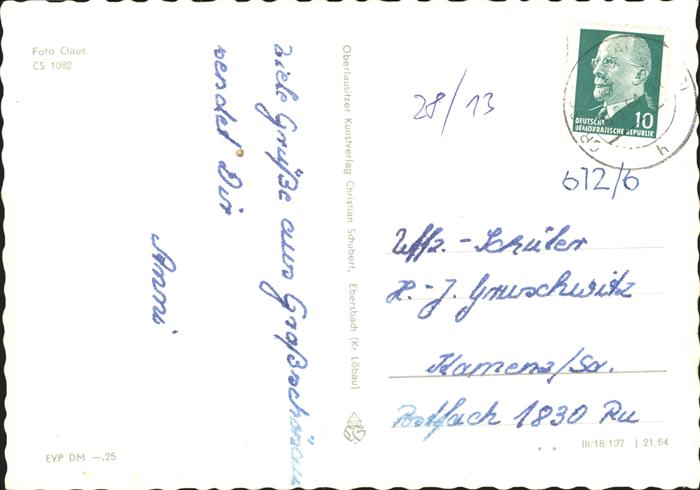 Foto Claus
CS 1082
Viele Grüße aus Großschönau
sendet Dir
Anni
EVP DM —.25
Oberlausitzer Kunstverlag Christian Schubert, Ebersbach (Kr Löbau)
28/13
10
DEUTSCHE
DEMOKRATISCHE REPUBLIK
612/6
Uffz.-Schüler
H.-J. Gruschwitz
Kamenz/Sa.
Postfach 1830 Ru
III/18/197 J 21/64